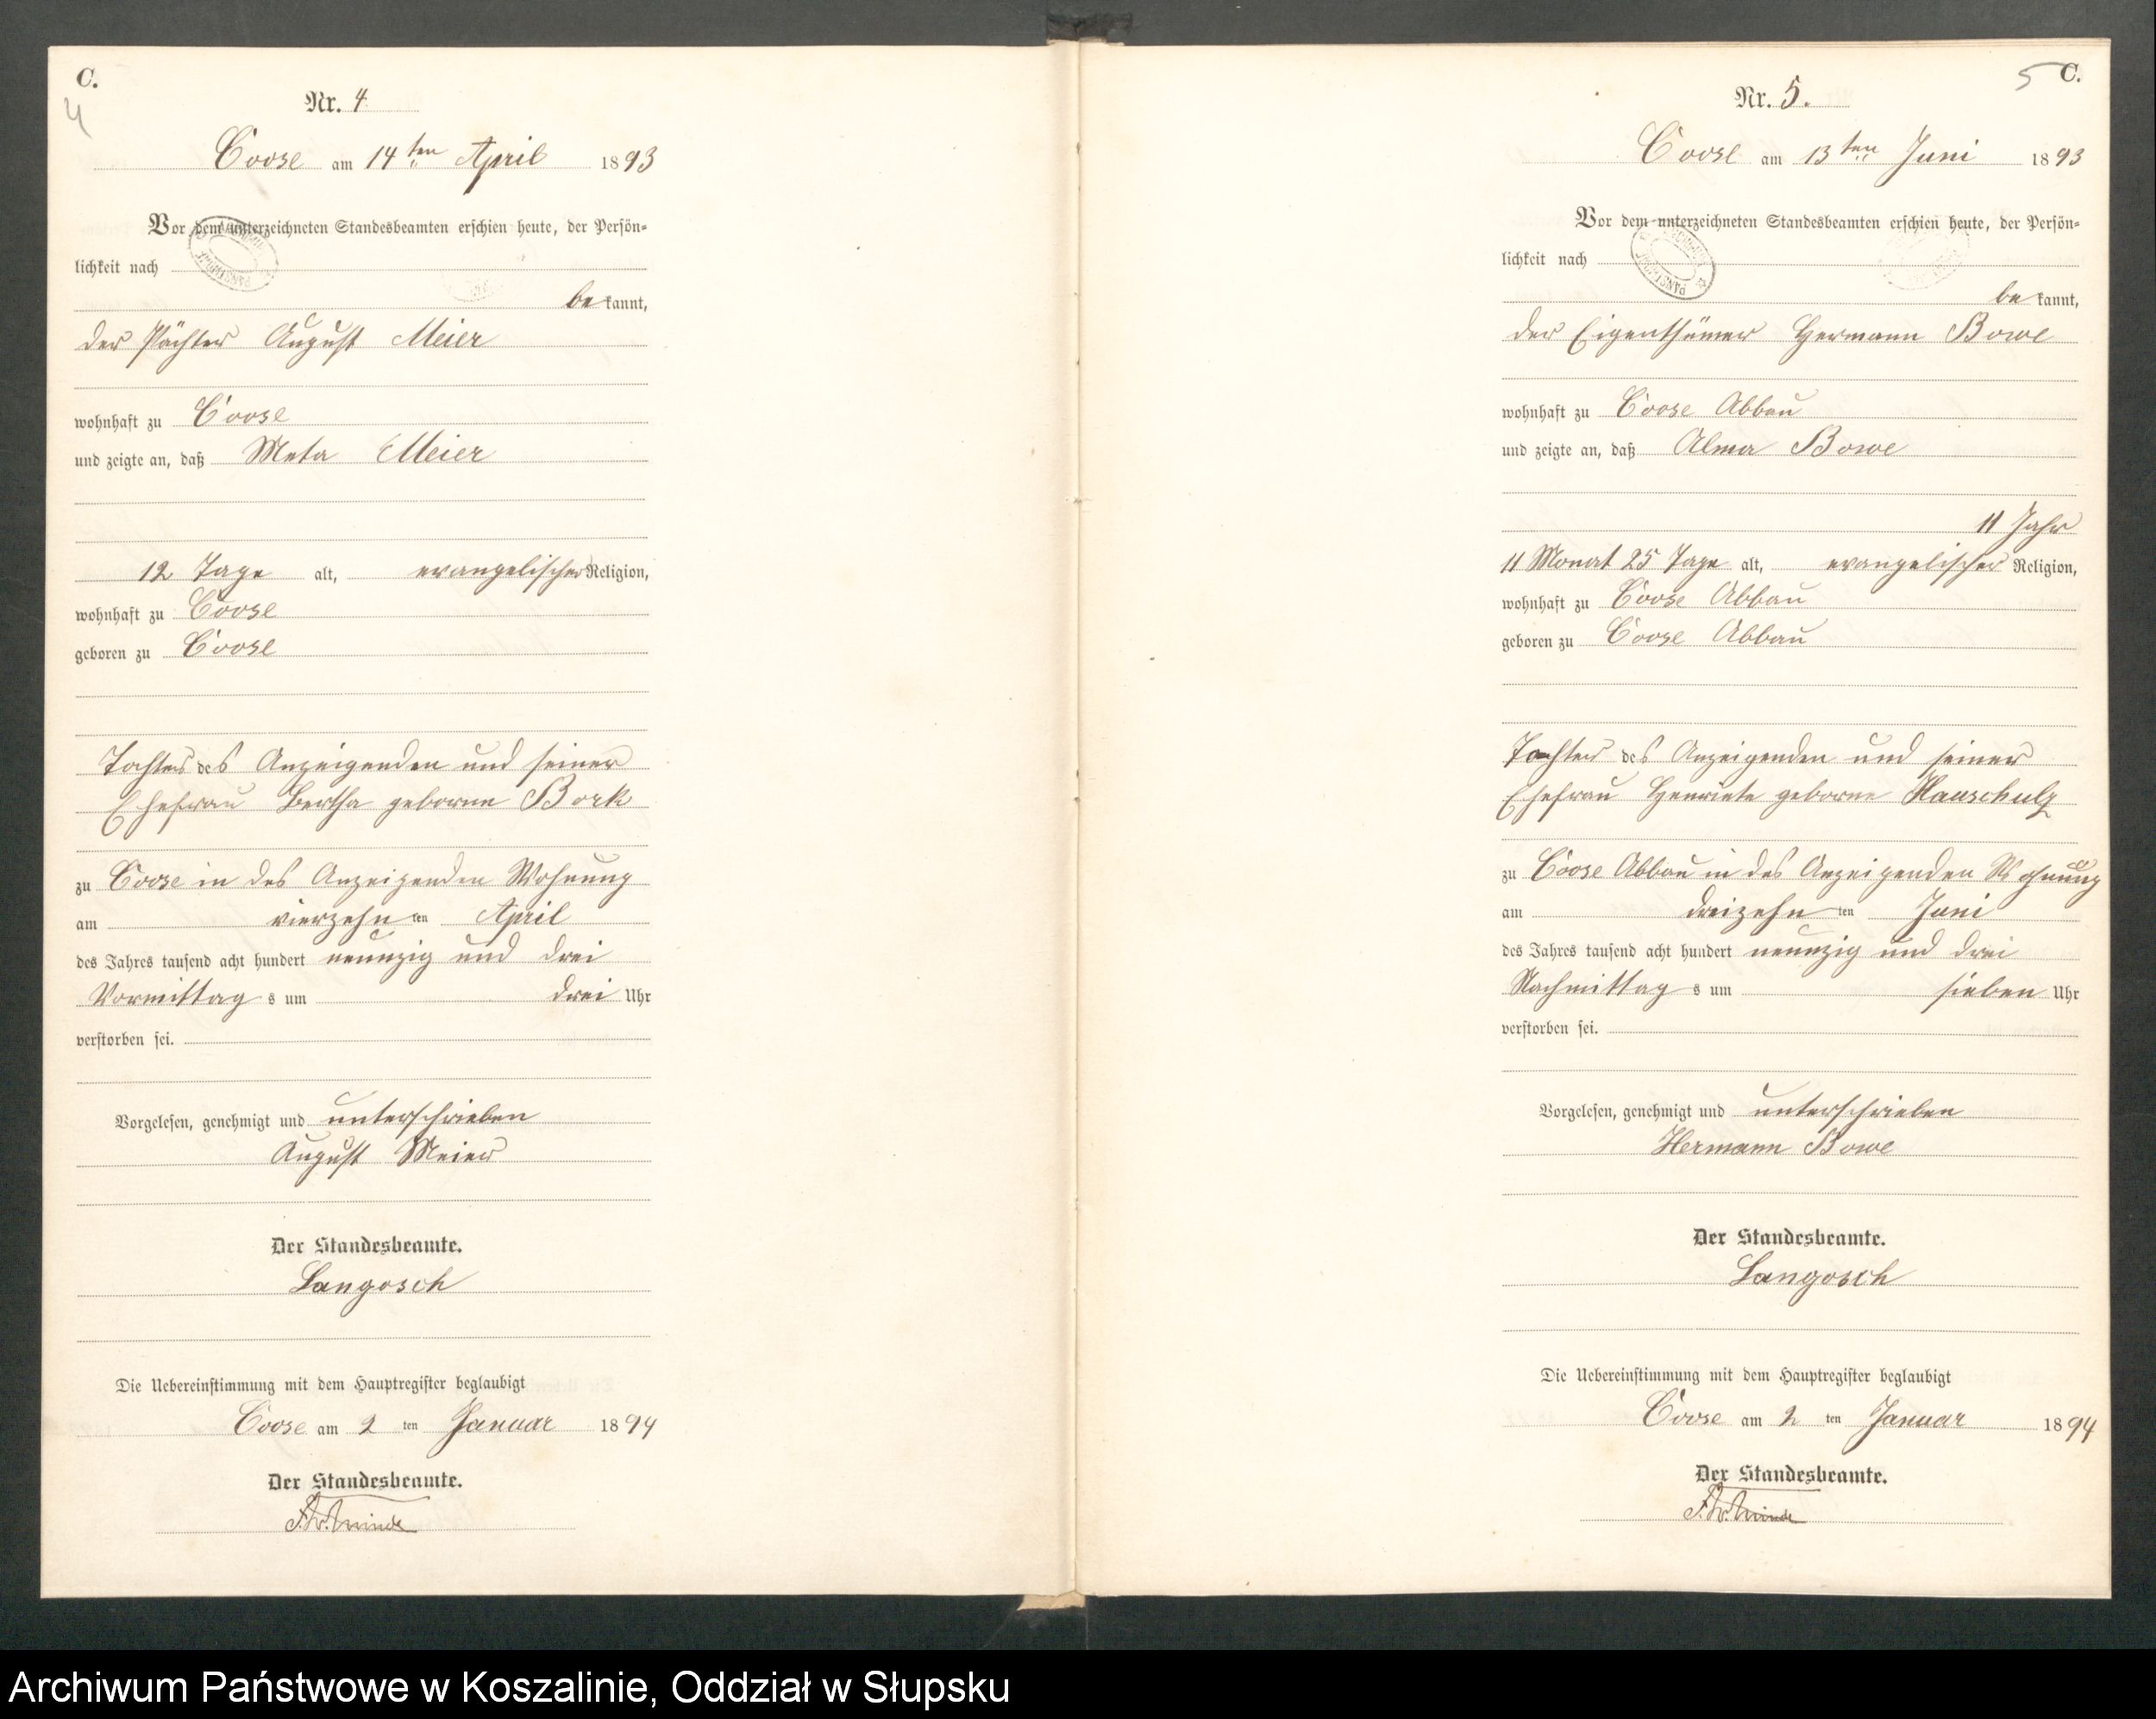 C.
4
Nr. 4
Coose am 14ten April 1893
Vor dem unterzeichneten Standesbeamten erschien heute, der Persön-
lichkeit nach
bekannt,
der Pächter August Meier
wohnhaft zu Coose
und zeigte an, daß Meta Meier
12 Tage alt, evangelischer Religion,
wohnhaft zu Coose
geboren zu Coose
Tochter des Anzeigenden und seiner
Ehefrau Bertha geborne Bork
zu Coose in des Anzeigenden Wohnung
am vierzehnten April
des Jahres tausend acht hundert neunzig und drei
Vormittags um drei Uhr
verstorben sei.
Vorgelesen, genehmigt und unterschrieben
August Meier
Der Standesbeamte.
Langosch
Die Uebereinstimmung mit dem Hauptregister beglaubigt
Coose am 2ten Januar 1894
Der Standesbeamte.
5 C.
Nr. 5.
Coose am 13ten Juni 1893
Vor dem unterzeichneten Standesbeamten erschien heute, der Persön-
lichkeit nach
bekannt,
der Eigenthümer Hermann Bowe
wohnhaft zu Coose Abbau
und zeigte an, daß Alma Bowe
11 Jahr
11 Monat 25 Tage alt, evangelischer Religion,
wohnhaft zu Coose Abbau
geboren zu Coose Abbau
Tochter des Anzeigenden und seiner
Ehefrau Henriete geborne Hauschulz
zu Coose Abbau in des Anzeigenden Wohnung
am dreizehnten Juni
des Jahres tausend acht hundert neunzig und drei
Nachmittags um sieben Uhr
verstorben sei.
Vorgelesen, genehmigt und unterschrieben
Hermann Bowe
Der Standesbeamte.
Langosch
Die Uebereinstimmung mit dem Hauptregister beglaubigt
Coose am 2ten Januar 1894
Der Standesbeamte.
Archiwum Państwowe w Koszalinie, Oddział w Słupsku